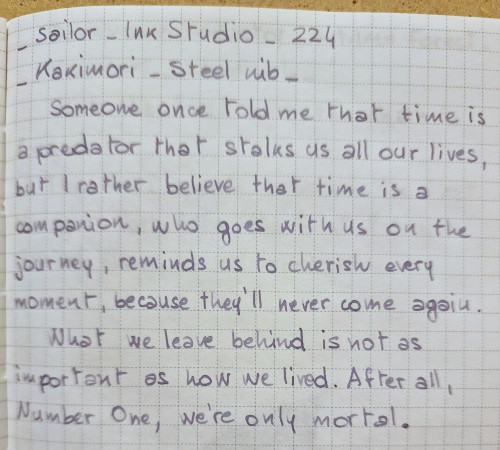 _ Sailor - Ink Studio - 224
_ Kakimori - Steel nib -
Someone once told me that time is
a predator that stalks us all our lives,
but I rather believe that time is a
companion, who goes with us on the
journey, reminds us to cherish every
moment, because they'll never come again.
What we leave behind is not as
important as how we lived. After all,
Number One, we're only mortal.